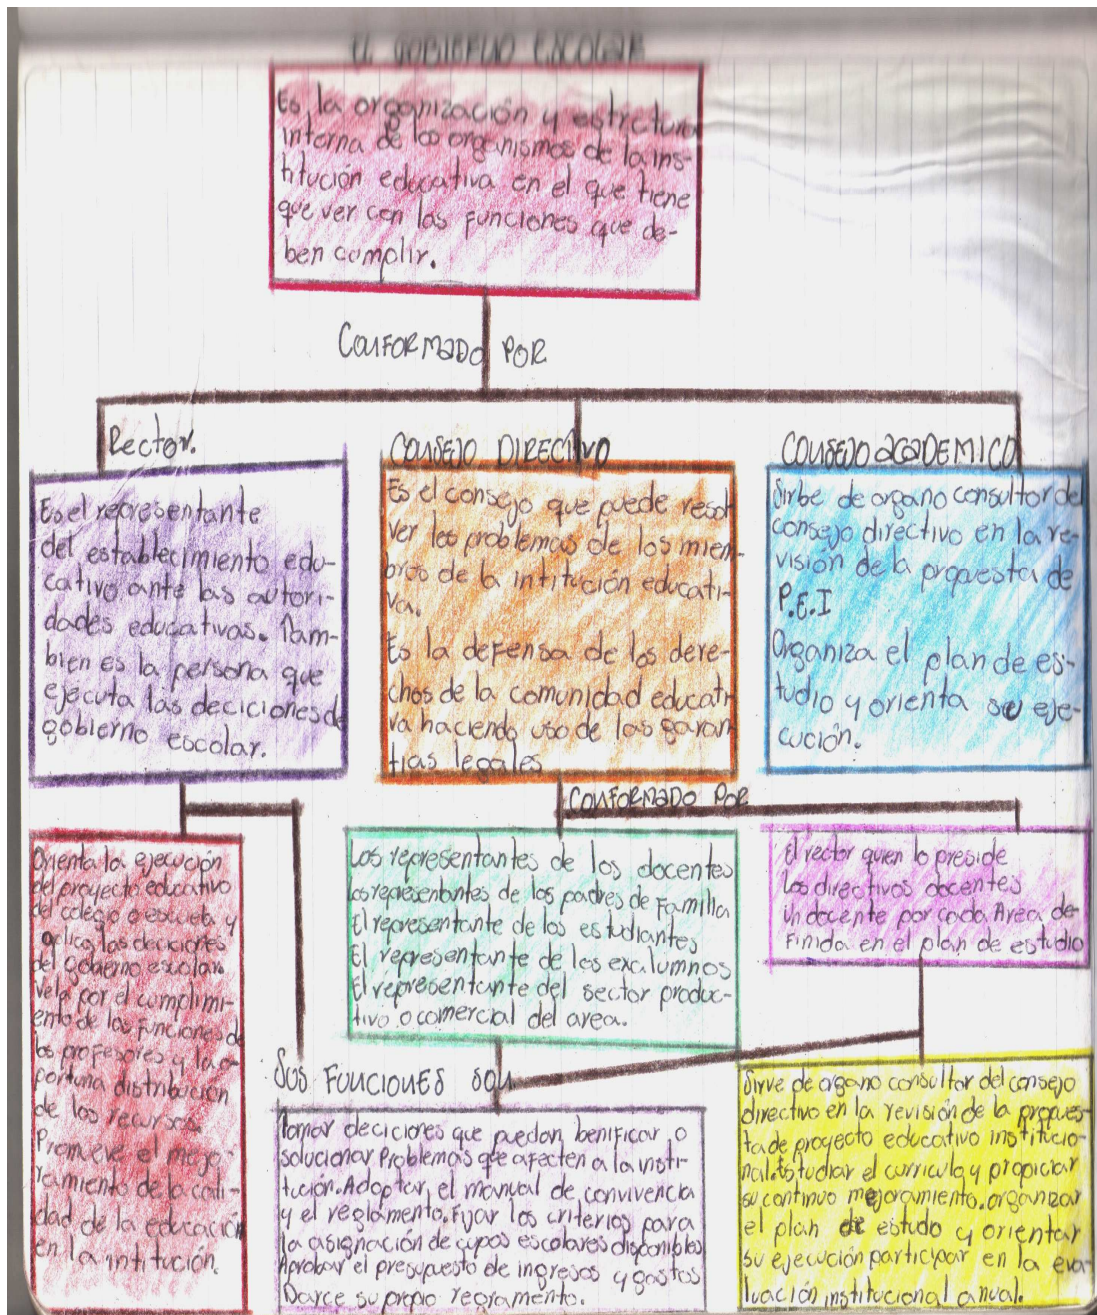 EL GOBIERNO ESCOLAR
Es la organización y estrctura
interna de los organismos de la ins-
titución educativa en el que tiene
que ver con las funciones que de-
ben cumplir.
CONFORMADO POR
Rector.
CONSEJO DIRECTIVO
CONSEJO ACADEMICO
Es el representante
del establecimiento edu-
cativo ante las autori-
dades educativas. Tam-
bien es la persona que
ejecuta las deciciones de
gobierno escolar.
Es el consejo que puede resol
ver los problemas de los miem-
bros de la intitución educati-
va.
Es la defensa de los dere-
chos de la comunidad educati
va haciendo uso de las garan
tias legales
Sirbe de organo consultor del
consejo directivo en la re-
visión de la propuesta de
P.E.I
Organiza el plan de es-
tudio y orienta su eje-
cución.
CONFORMADO POR
Orienta la ejecución
del proyecto educativo
del colegio o escuela y
aplica las deciciones
del gobierno escolar.
Vela por el cumplimi-
ento de las funciones de
los profesores y la o-
portuna distribución
de los recursos.
Promueve el mejo-
ramiento de la cali-
dad de la educación
en la intitución.
Los representantes de los docentes
Los representantes de los padres de Familia
El representante de los estudiantes
El representante de los exalumnos
El representante del sector produc-
tivo o comercial del area.
El rector quien lo preside
Los directivos docentes
Un docente por cada Area de-
Finida en el plan de estudio
SUS FUNCIONES SON
Tomar deciciones que puedan benificar o
solucionar Problemas que afecten a la insti-
tución. Adoptar el manual de convivencia
y el reglamento. Fijar los criterios para
la asignación de cupos escolares disponibles
Aprobar el presupuesto de ingresos y gastos
Darce su propio reglamento.
Sirve de organo consultor del consejo
directivo en la revisión de la propues-
ta de proyecto educativo institucio-
nal. Estudiar el curriculo y propiciar
su continuo mejoramiento. organizar
el plan de estudo y orientar
su ejecución participar en la eva-
luación institucional anual.